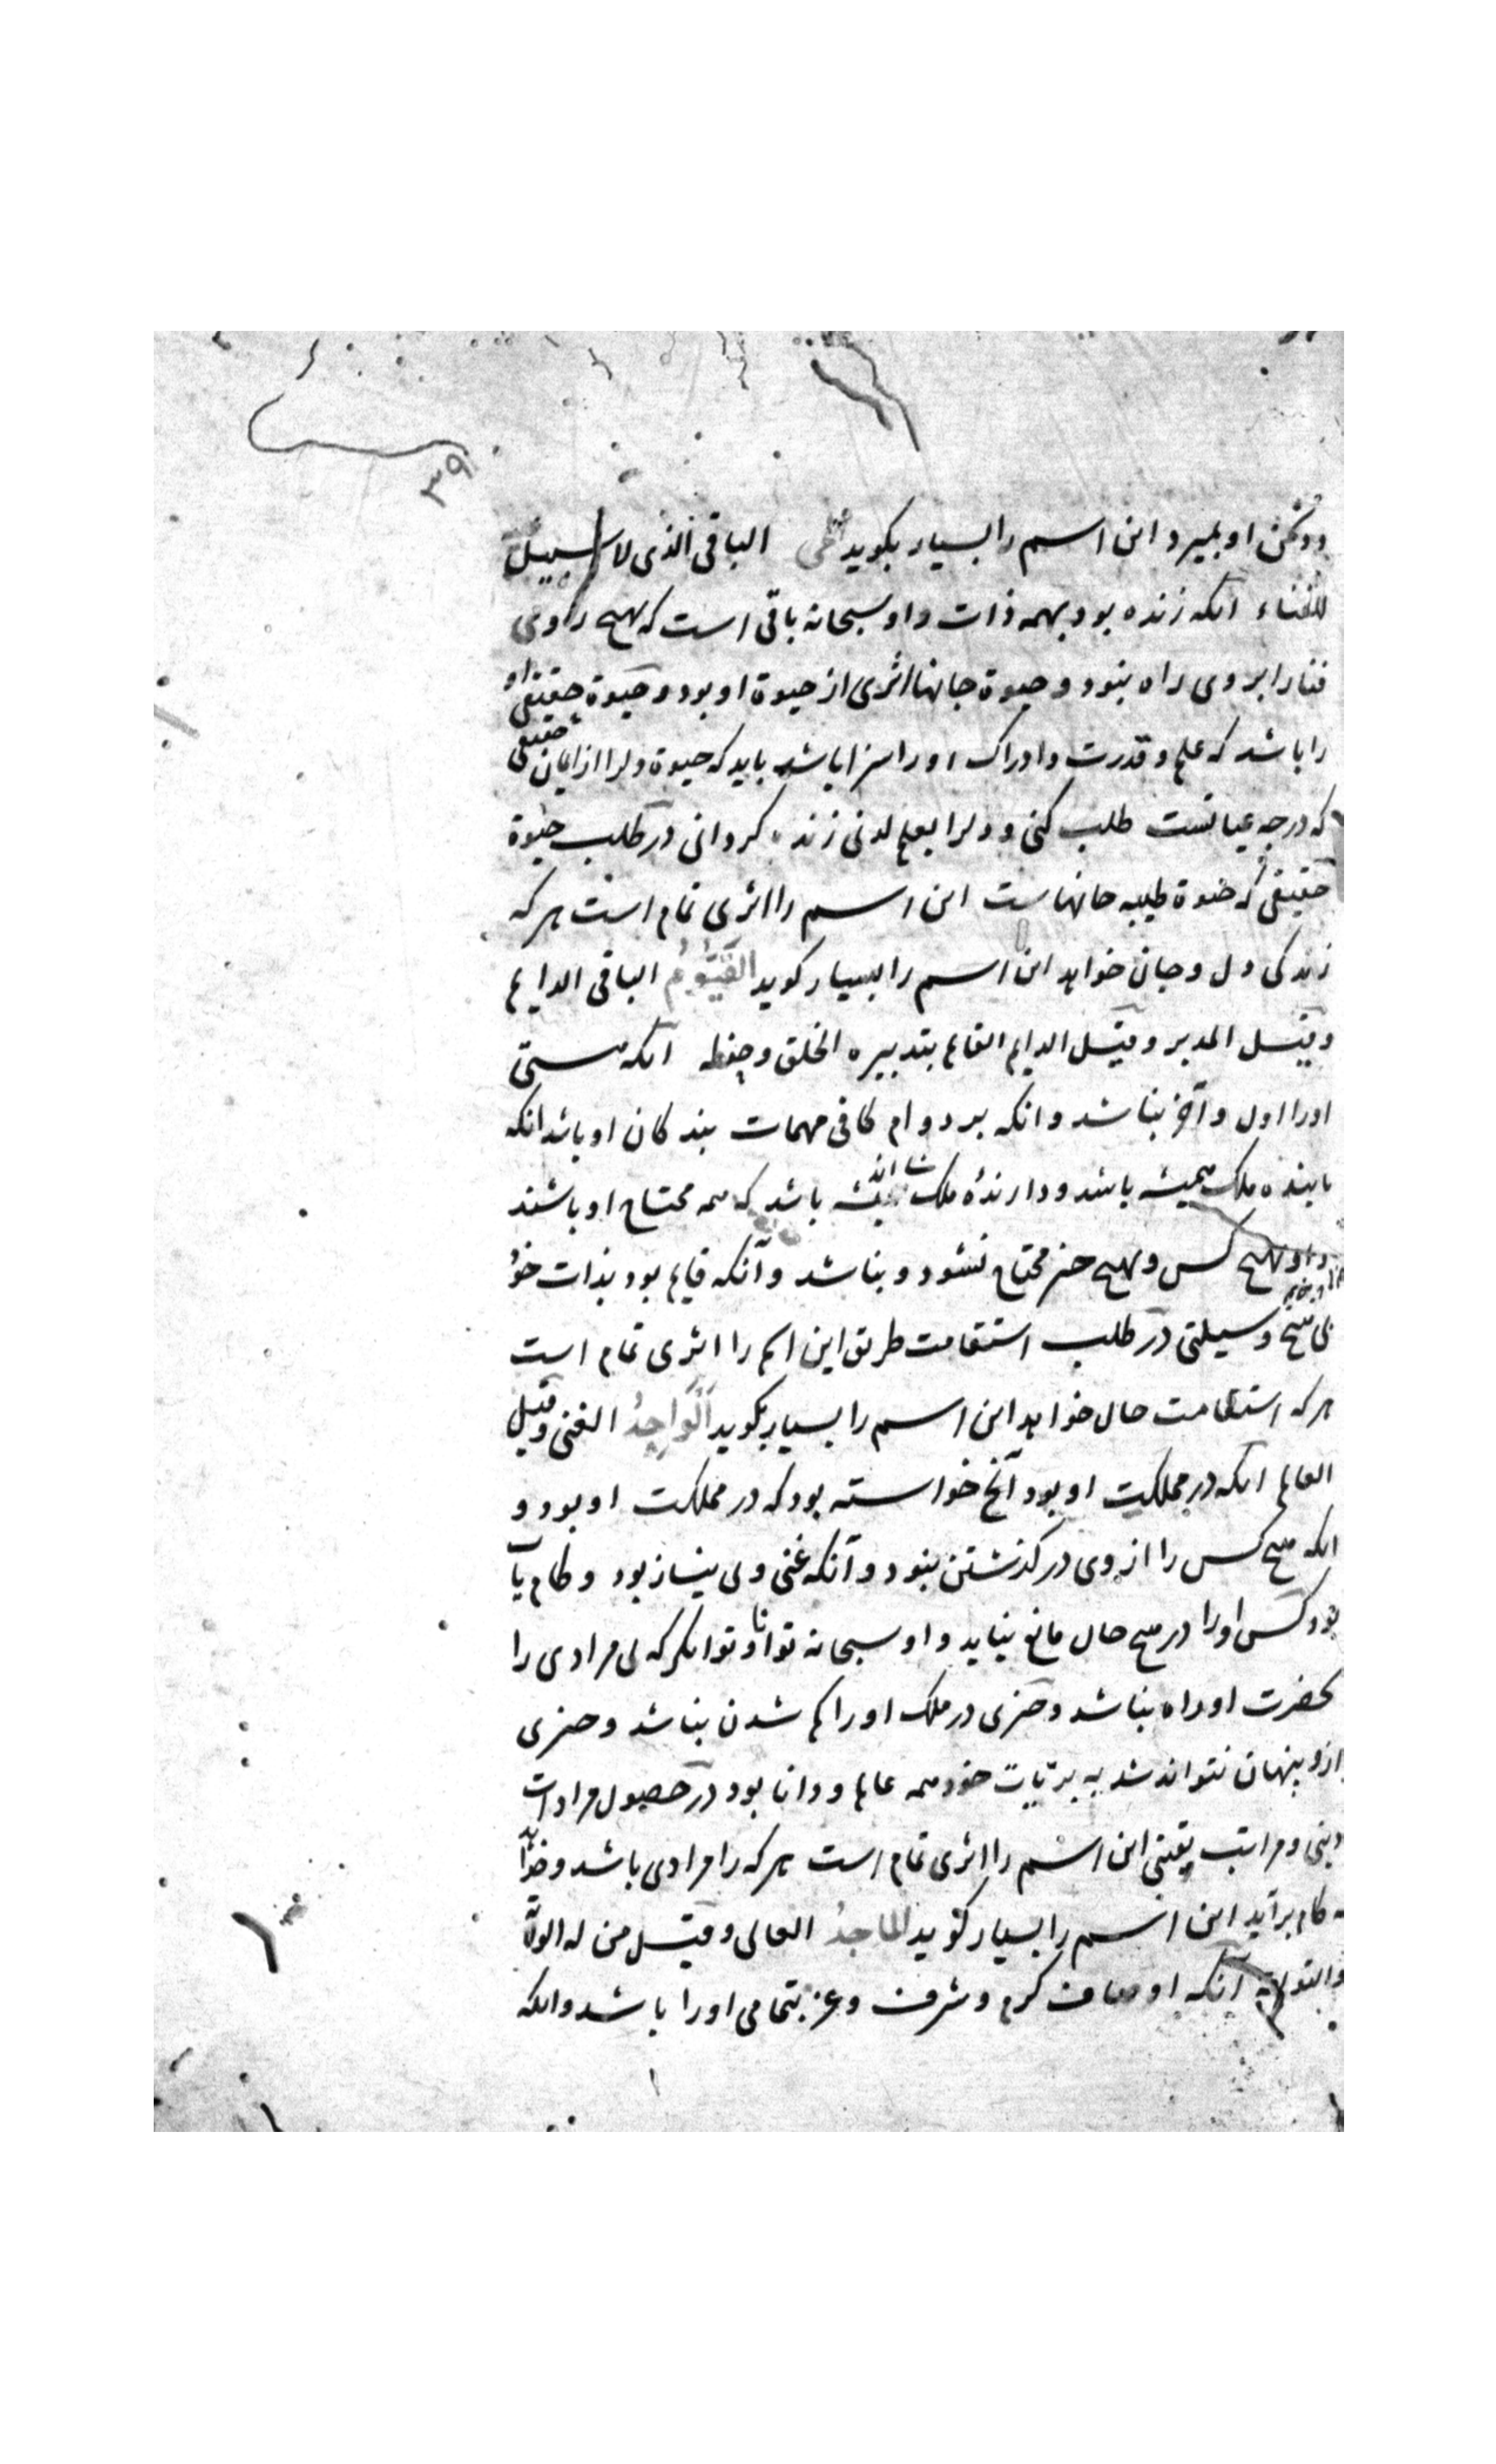 ۳۹
ودشمن او بمیرد این اسم را بسیار بکوید الحی الباقی الذی لا سبیل
للفناء آنکه زنده بود بهمه ذات و او سبحانه باقی است که هیچ راوی
فنا را بر وی راه نبود و حیوة جانها اثری از حیوة او بود و حیوة حقیقی او
را باشد که علم و قدرت و ادراک او را سزا باشد باید که حیوة دلرا از ایمان حقیقی
که درجه عیانست طلب کنی و دلرا بعلم لدنی زنده کردانی در طلب حیوة
حقیقی که حیوة طیبه جانهاست این اسم را اثری تمام است هر که
زندکی دل و جان خواهد این اسم را بسیار کوید القَیُّوُمُ الباقی الدایم
وقیل المدبر وقیل الدایم القایم بتدبیره الخلق وحفظه آنکه هستی
او را اول و آخر نباشد و انکه بر دوام کافی مهمات بندکان او باشد انکه
پاینده ملک همیشه باشد و دارندهٔ ملک باشد که همه محتاج او باشند
و او بهیچ کس و بهیچ چیز محتاج نشود و نباشد و آنکه قایم بود بذات خود
بی هیچ وسیلتی در طلب استقامت طریق این اسم را اثری تمام است
هر که استقامت حال خواهد این اسم را بسیار بکوید اَلْوَاجِدُ الغنی وقیل
العالم انکه در مملکت او بود آنچ خواسته بود که در مملکت او بود و
انکه هیچ کس را از وی در کذشتن نبود و آنکه غنی و بی نیاز بود و کام یاب
بود کس او را در هیچ حال مانع نیاید و او سبحانه توانا و توانکر که بی مرادی را
بحضرت او راه نباشد و چیزی در ملک او را کم شدن نباشد و چیزی
ازو پنهان نتواند شد به بریّات خود همه عالم و دانا بود در حصول مرادات
دینی و مراتب یقینی این اسم را اثری تمام است هر که را مرادی باشد و خواهد
که کام برآید این اسم را بسیار کوید الماجدُ العالی وقیل من له الولایة
والتولیة آنکه اوصاف کرم و شرف و عز بتمامی او را باشد وانکه